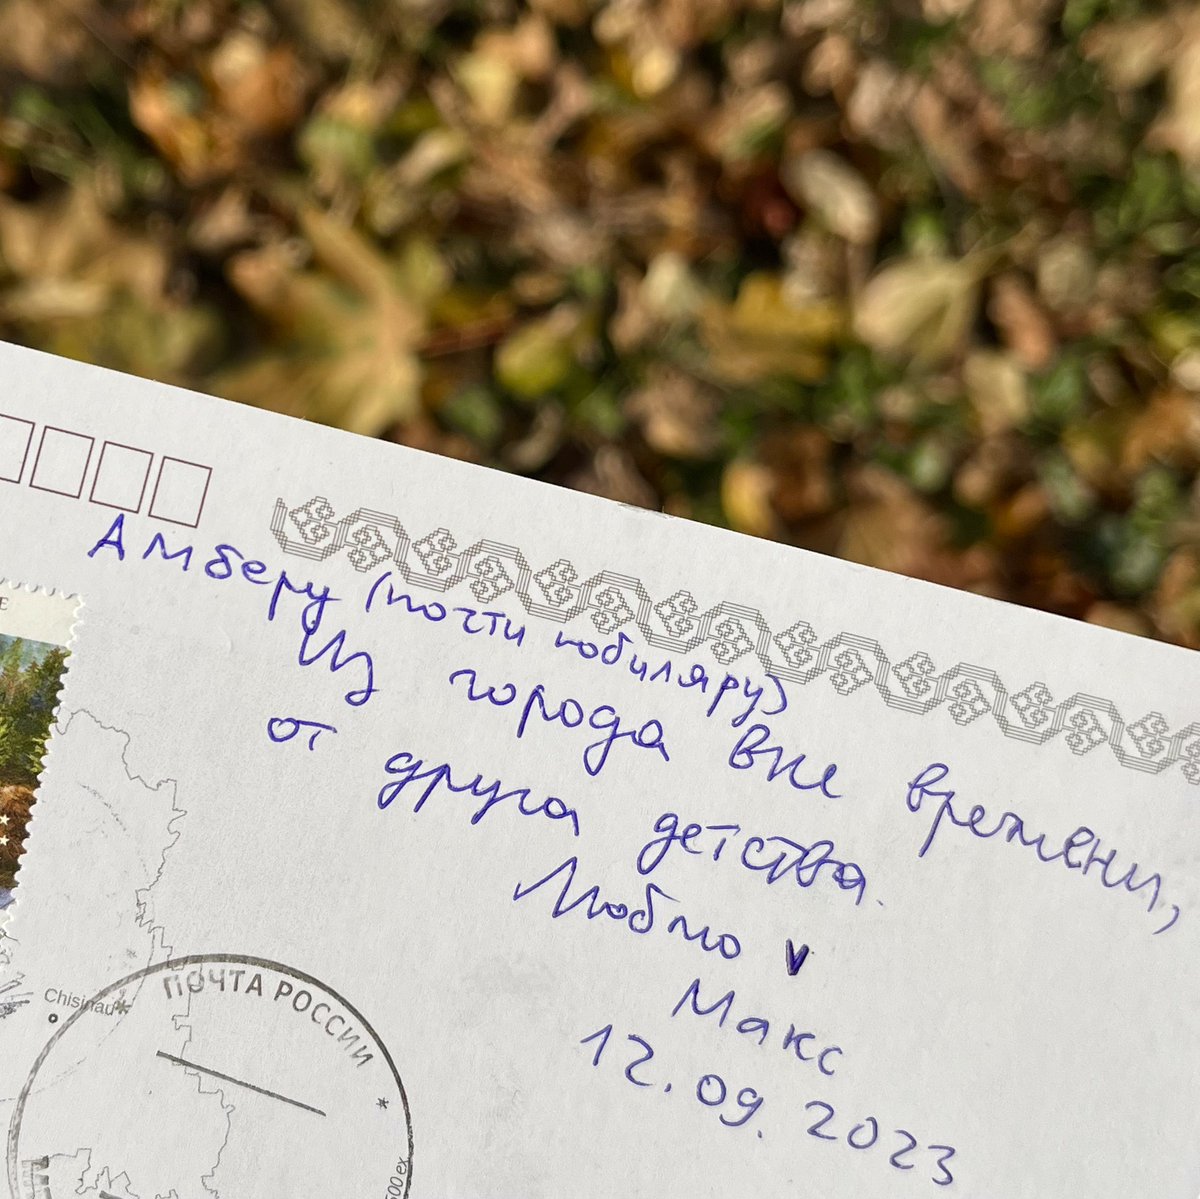 Амберу (почти юбиляру)
Из города вне времени,
от друга детства.
Люблю
Макс
12.09.2023
Chisinau
ПОЧТА РОССИИ
500 ex
E